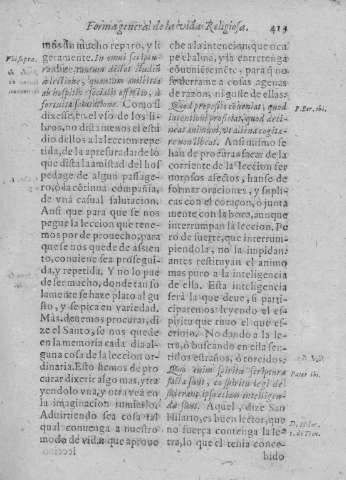 Forma general de la vida Religiosa. 413
mos sin mucho reparo, y li
geramente. In omni scriptu
tantum distat studium
à lectione, quantum amicitia
ab hospitio
fortuita salutatione. Como si
dixesse, en el vso de los li-
bros, no dista menos el estu
dio dellos a la leccion repe-
tida, de la apresurada; de lo
que dista la amistad del hos
pedage de algun passage-
ro, ò da còtinua compañia,
de vna casual salutacion.
Ansi que para que se nos
pegue la leccion que tene-
mos por de prouecho, para
que se nos quede de assien
to, conuiene sea prosegui-
da, y repetida. Y no lo pue
de ser mucho, donde tan so
lamente se haze plato al gu
sto, y se pica en variedad.
Mas, deuemos procurar, di
ze el Santo, se nos quede
en la memoria cada dia al-
guna cosa de la leccion or-
dinaria. Esto hemos de pro
curar dixerir algo mas, y tra
yendolo vna, y otra vez en
la imaginacion rumiarlo.
Aduirtiendo sea cosa tal
qual conuenga a nuestro
modo de vida: que aproue
che a la intencion; que ocu
pe el alma, y la entretenga
cõueniẽtemẽte; para q̃ no se
derrame a cosas agenas
de razon, ni guste de ellas:
Quod proposito conueniat, quod
intentioni proficiat, quod deti-
neat animum, vt aliena cogita-
re non libeat. Ansi mismo se
han de procurar sacar de la
corriente de la leccion fer
uorosos afectos, hanse de
formar oraciones, y supli-
cas con el coraçon, ò junta
mente con la boca, aunque
interrumpan la leccion. Pe
ro de suerte, que interrum-
piendola, no la impidan:
antes restituyan el animo
mas puro a la inteligencia
de ella. Esta inteligencia
será la que deue, si parti-
ciparemos leyendo el es-
piritu que tuuo el que es-
criuio. No dando a la le-
tra, ò buscando en ella sen-
tidos estraños, ò torcidos:
Quo enim spiritu scripturæ
factæ sunt, eo spiritu legi de-
siderant: ipso etiam intelligen-
dæ sunt. Aquel, dize San
Hilario, es buen letor, que
no fuerça contenga la le-
tra, lo que el tenia conce-
bido
P. Ber. ibi.
Pater ibi.
D. Hilar.